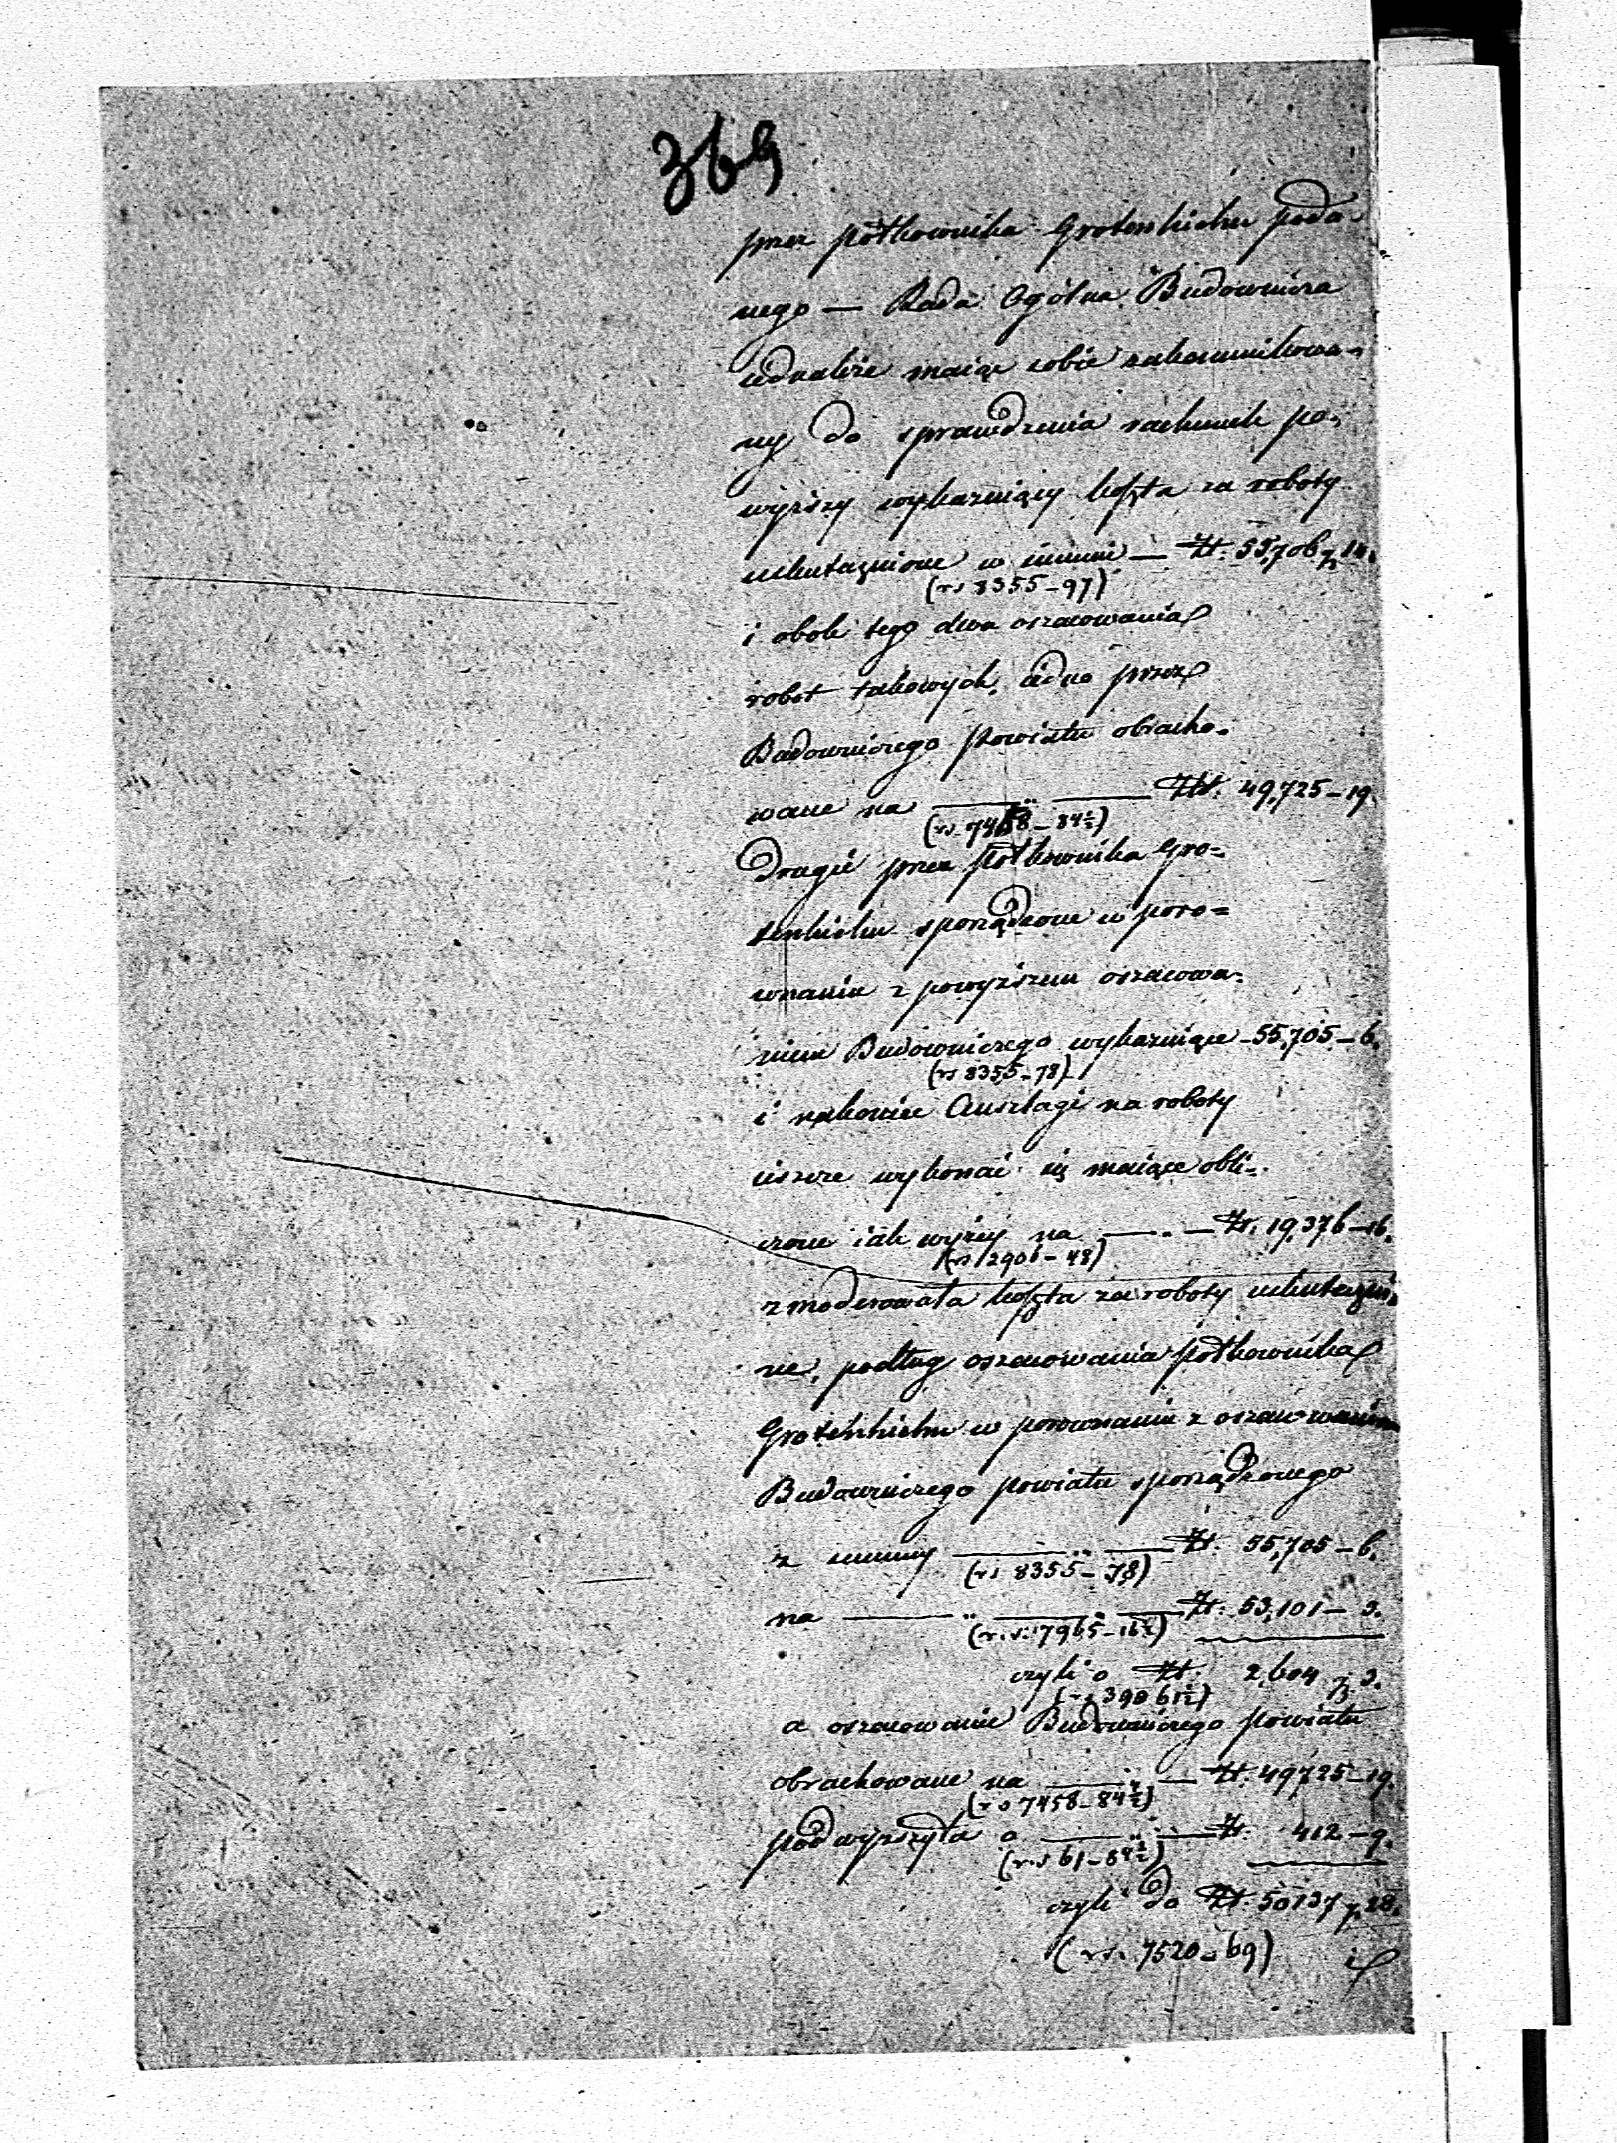 369
przez Półkownika Grotenhielm poda-
nego — Rada Ogólna Budownicza
iednakże maiąc sobie zakommunikowa-
ny do sprawdzenia rachunek po-
wyższy wykazuiący koszta za roboty
uskutecznione w summie — Zł. 55,706 g 14.
(rs 8355-97)
i obok tego dwa oszacowania
robot takowych, iedno przez
Budowniczego Powiatu obracho-
wane na — Zł. 49,725-19.
(rs 7458-84½)
drugie przez Półkownika Gro-
tenhielm sporządzone w poro=
wnaniu z powyższem oszacowa-
niem Budowniczego wykazuiące - 55,705-6.
(rs 8355-78)
i nakoniec Anszlagi na roboty
ieszcze wykonać się maiące obli-
czone iak wyżey na — Zł. 19,376-16.
(rs 2906-48)
zmoderowała koszta za roboty uskuteczni-
ne, podług oszacowania Półkownika
Grotenhielm w porownaniu z oszacowaniem
Budowniczego Powiatu sporządzonego
z summy — Zł. 55,705-6.
(rs 8355-78)
na — Zł. 53,101-3.
(rs. 7965-16½)
czyli o Zł. 2,604 g 3.
(rs 390 61½)
a oszacowanie Budowniczego Powiatu
obrachowane na — Zł. 49725-19.
(rs 7458-84½)
podwyższyła o — Zł. 412-9.
(rs 61-84½)
czyli do Zł. 50137 g. 28.
(rs. 7520-69)
i